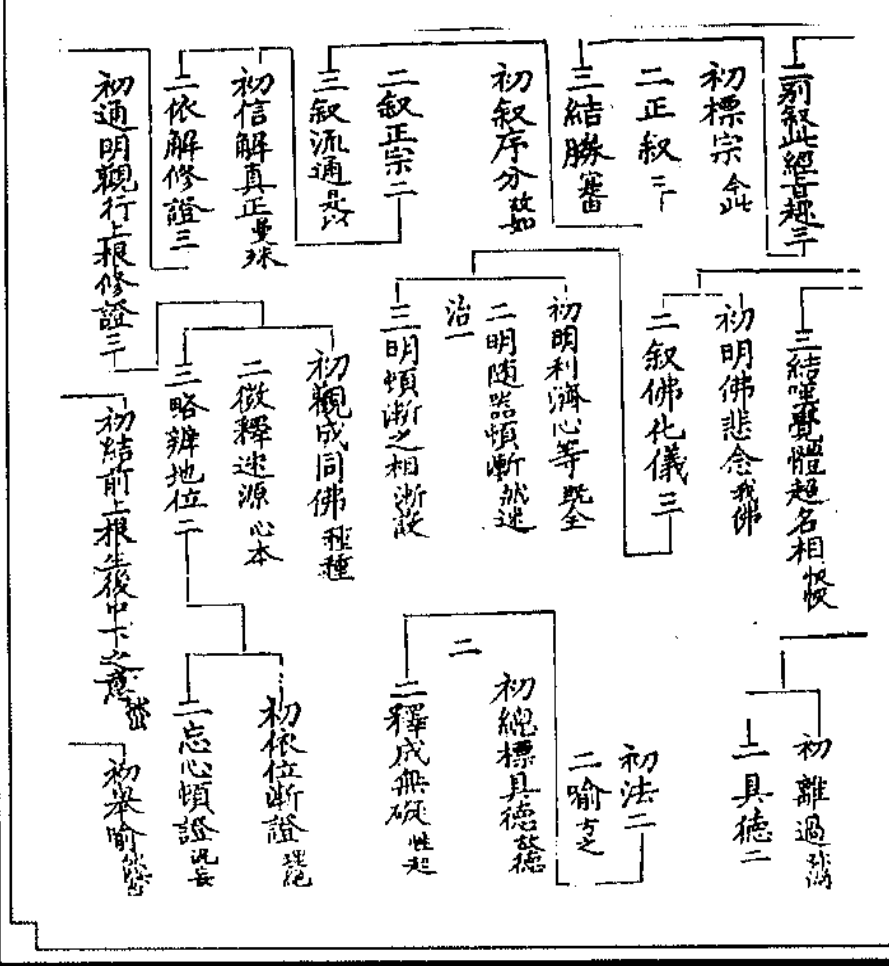 二別叙此經旨趣三
初標宗 今此
二正叙三
三結勝 審
初叙序分 故如
二叙正宗二
三叙流通 是以
初信解真正 曼殊
二依解修證三
初通明觀行上根修證三
三結嘆覺體超名相
初明佛悲念 我佛
二叙佛化儀三
初明利濟心等 既全
二明随器頓漸 然迷
治一
三明頓漸之相 漸故
初觀成同佛 種種
二徵釋迷源 心本
三略辨地位二
初結前上根生後中下之意
初離過
二具德二
初法二
二喻 方之
初總標具德 故德
二
二釋成無礙 性起
初依位漸證
二忘心頓證 況妄
初举喻